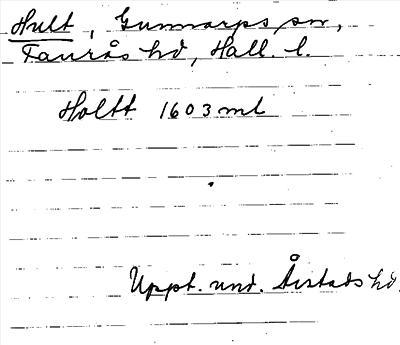 Hult, Gunnarps sn,
Faurås hd, Hall. l.
Holtt 1603 ml
Uppt. und. Årstads hd.